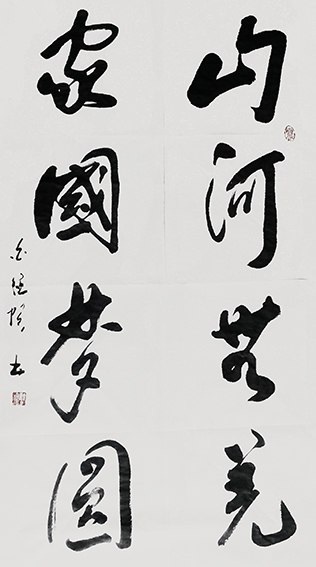 山河無恙
家國夢圓